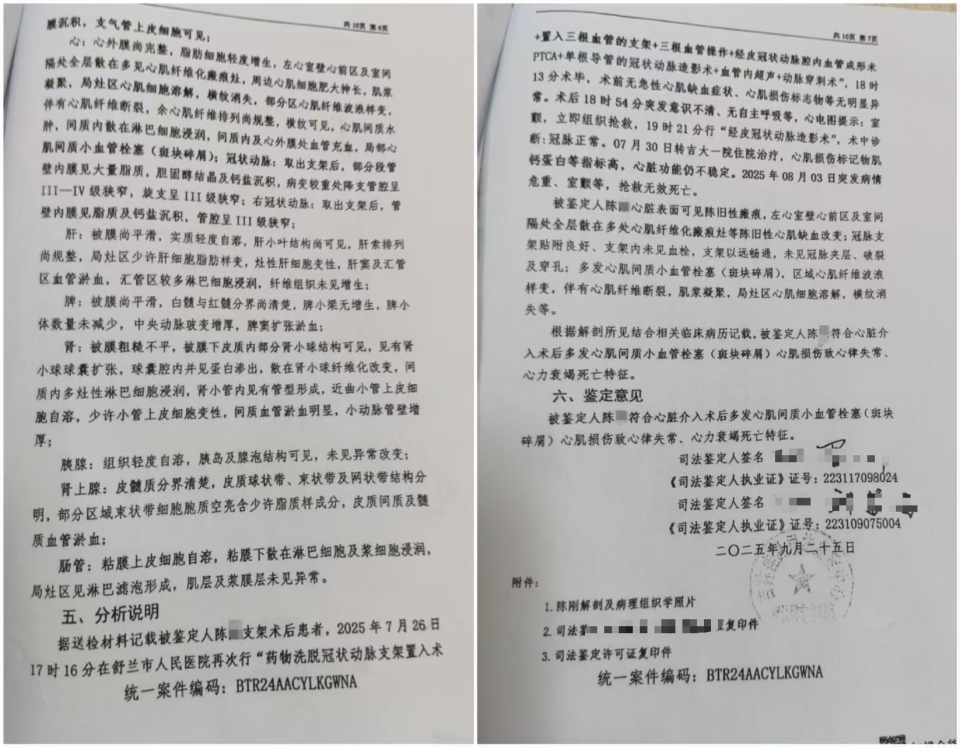 共10页 第6页
膜沉积，支气管上皮细胞可见；
心：心外膜尚完整，脂肪细胞轻度增生，左心室壁心前区及室间
隔处全层散在多见心肌纤维化瘢痕灶，周边心肌细胞肥大伸长，肌浆
凝聚，局灶区心肌细胞溶解，横纹消失，部分区心肌纤维波浪样变，
伴有心肌纤维断裂，余心肌纤维排列尚规整，横纹可见，心肌间质水
肿，间质内散在淋巴细胞浸润，间质内及心外膜处血管充血，局部心
肌间质小血管栓塞（斑块碎屑）；冠状动脉：取出支架后，部分段管
壁内膜见大量脂质，胆固醇结晶及钙盐沉积，病变较重处降支管腔呈
III—IV 级狭窄，旋支呈 III 级狭窄；右冠状动脉：取出支架后，管
壁内膜见脂质及钙盐沉积，管腔呈 III 级狭窄；
肝：被膜尚平滑，实质轻度自溶，肝小叶结构尚可见，肝索排列
尚规整，局灶区少许肝细胞脂肪样变，灶性肝细胞变性，肝窦及汇管
区血管淤血，汇管区较多淋巴细胞浸润，纤维组织未见增生；
脾：被膜尚平滑，白髓与红髓分界尚清楚，脾小梁无增生，脾小
体数量未减少，中央动脉玻变增厚，脾窦扩张淤血；
肾：被膜粗糙不平，被膜下皮质内部分肾小球结构可见，见有肾
小球球囊扩张，球囊腔内并见蛋白渗出，散在肾小球纤维化改变，间
质内多灶性淋巴细胞浸润，肾小管内见有管型形成，近曲小管上皮细
胞自溶，少许小管上皮细胞变性，间质血管淤血明显，小动脉管壁增
厚；
胰腺：组织轻度自溶，胰岛及腺泡结构可见，未见异常改变；
肾上腺：皮髓质分界清楚，皮质球状带、束状带及网状带结构分
明，部分区域束状带细胞胞质空亮含少许脂质样成分，皮质间质及髓
质血管淤血；
肠管：粘膜上皮细胞自溶，粘膜下散在淋巴细胞及浆细胞浸润，
局灶区见淋巴滤泡形成，肌层及浆膜层未见异常。
五、分析说明
据送检材料记载被鉴定人陈 支架术后患者，2025 年 7 月 26 日
17 时 16 分在舒兰市人民医院再次行“药物洗脱冠状动脉支架置入术
统一案件编码：BTR24AACYLKGWNA
共10页 第7页
+置入三根血管的支架+三根血管操作+经皮冠状动脉腔内血管成形术
PTCA+单根导管的冠状动脉造影术+血管内超声+动脉穿刺术”，18 时
13 分术毕，术前无急性心肌缺血症状、心肌损伤标志物等无明显异
常。术后 18 时 54 分突发意识不清、无自主呼吸等，心电图提示：室
颤，立即组织抢救，19 时 21 分行“经皮冠状动脉造影术”，术中诊
断：冠脉正常。07 月 30 日转吉大一院住院治疗，心肌损伤标记物肌
钙蛋白等指标高，心脏功能仍不稳定。2025 年 08 月 03 日突发病情
危重、室颤等，抢救无效死亡。
被鉴定人陈 心脏表面可见陈旧性瘢痕，左心室壁心前区及室间
隔处全层散在多处心肌纤维化瘢痕灶等陈旧性心肌缺血改变；冠脉支
架贴附良好、支架内未见血栓，支架以远畅通，未见冠脉夹层、破裂
及穿孔；多发心肌间质小血管栓塞（斑块碎屑），区域心肌纤维波浪
样变，伴有心肌纤维断裂，肌浆凝聚，局灶区心肌细胞溶解，横纹消
失等。
根据解剖所见结合相关临床病历记载，被鉴定人陈 符合心脏介
入术后多发心肌间质小血管栓塞（斑块碎屑）心肌损伤致心律失常、
心力衰竭死亡特征。
六、鉴定意见
被鉴定人陈 符合心脏介入术后多发心肌间质小血管栓塞（斑块
碎屑）心肌损伤致心律失常、心力衰竭死亡特征。
司法鉴定人签名
《司法鉴定人执业证》证号：223117098024
司法鉴定人签名
《司法鉴定人执业证》证号：223109075004
二〇二五年九月二十五日
附件：
1. 陈刚解剖及病理组织学照片
2. 司法鉴 证复印件
3. 司法鉴定许可证复印件
统一案件编码：BTR24AACYLKGWNA